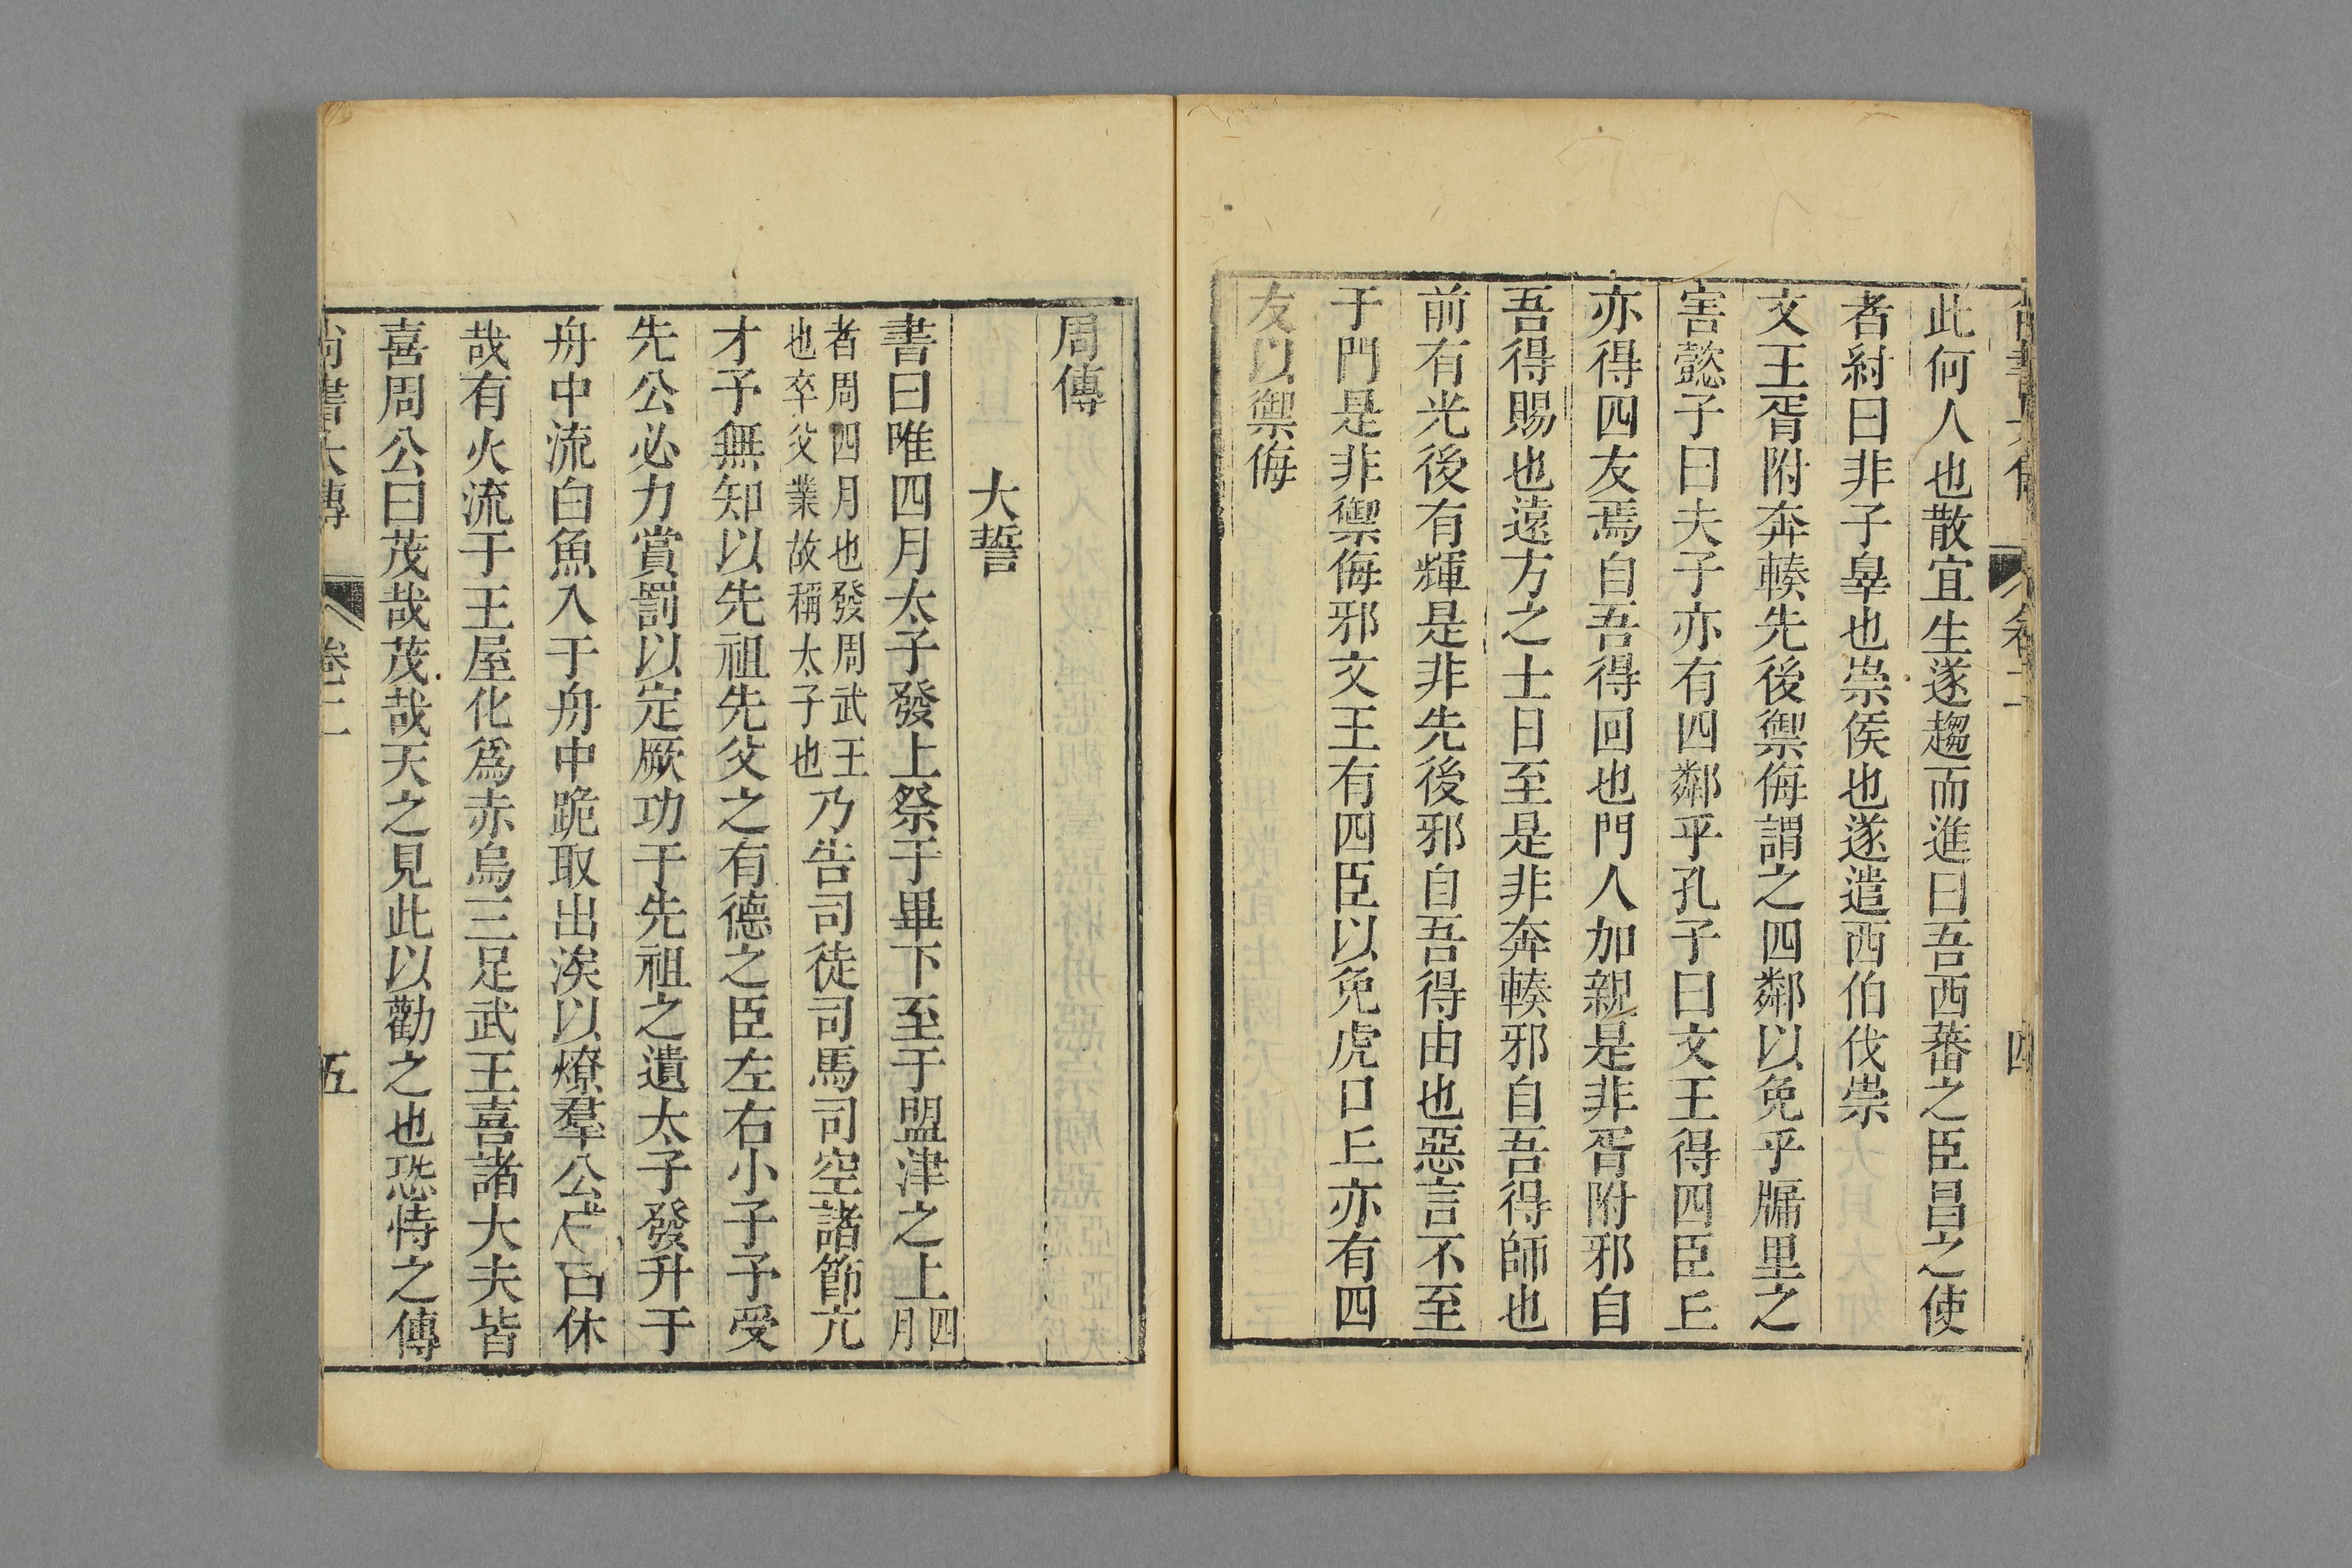 此何人也散宜生遂趨而進曰吾西蕃之臣昌之使
者紂曰非子辠也崇侯也遂遣西伯伐崇
文王胥附奔輳先後禦侮謂之四鄰以免乎牖里之
害懿子曰夫子亦有四鄰乎孔子曰文王得四臣丘
亦得四友焉自吾得回也門人加親是非胥附邪自
吾得賜也遠方之士日至是非奔輳邪自吾得師也
前有光後有輝是非先後邪自吾得由也惡言不至
于門是非禦侮邪文王有四臣以免虎口丘亦有四
友以禦侮
周傳
大誓
書曰唯四月太子發上祭于畢下至于盟津之上四月
者周四月也發周武王也卒父業故稱太子也乃告司徒司馬司空諸節亢
才予無知以先祖先父之有德之臣左右小子予受
先公必力賞罰以定厥功于先祖之遺太子發升于
舟中流白魚入于舟中跪取出涘以燎羣公咸曰休
哉有火流于王屋化爲赤烏三足武王喜諸大夫皆
喜周公曰茂哉茂哉天之見此以勸之也恐恃之傳
尚書大傳 卷二 五